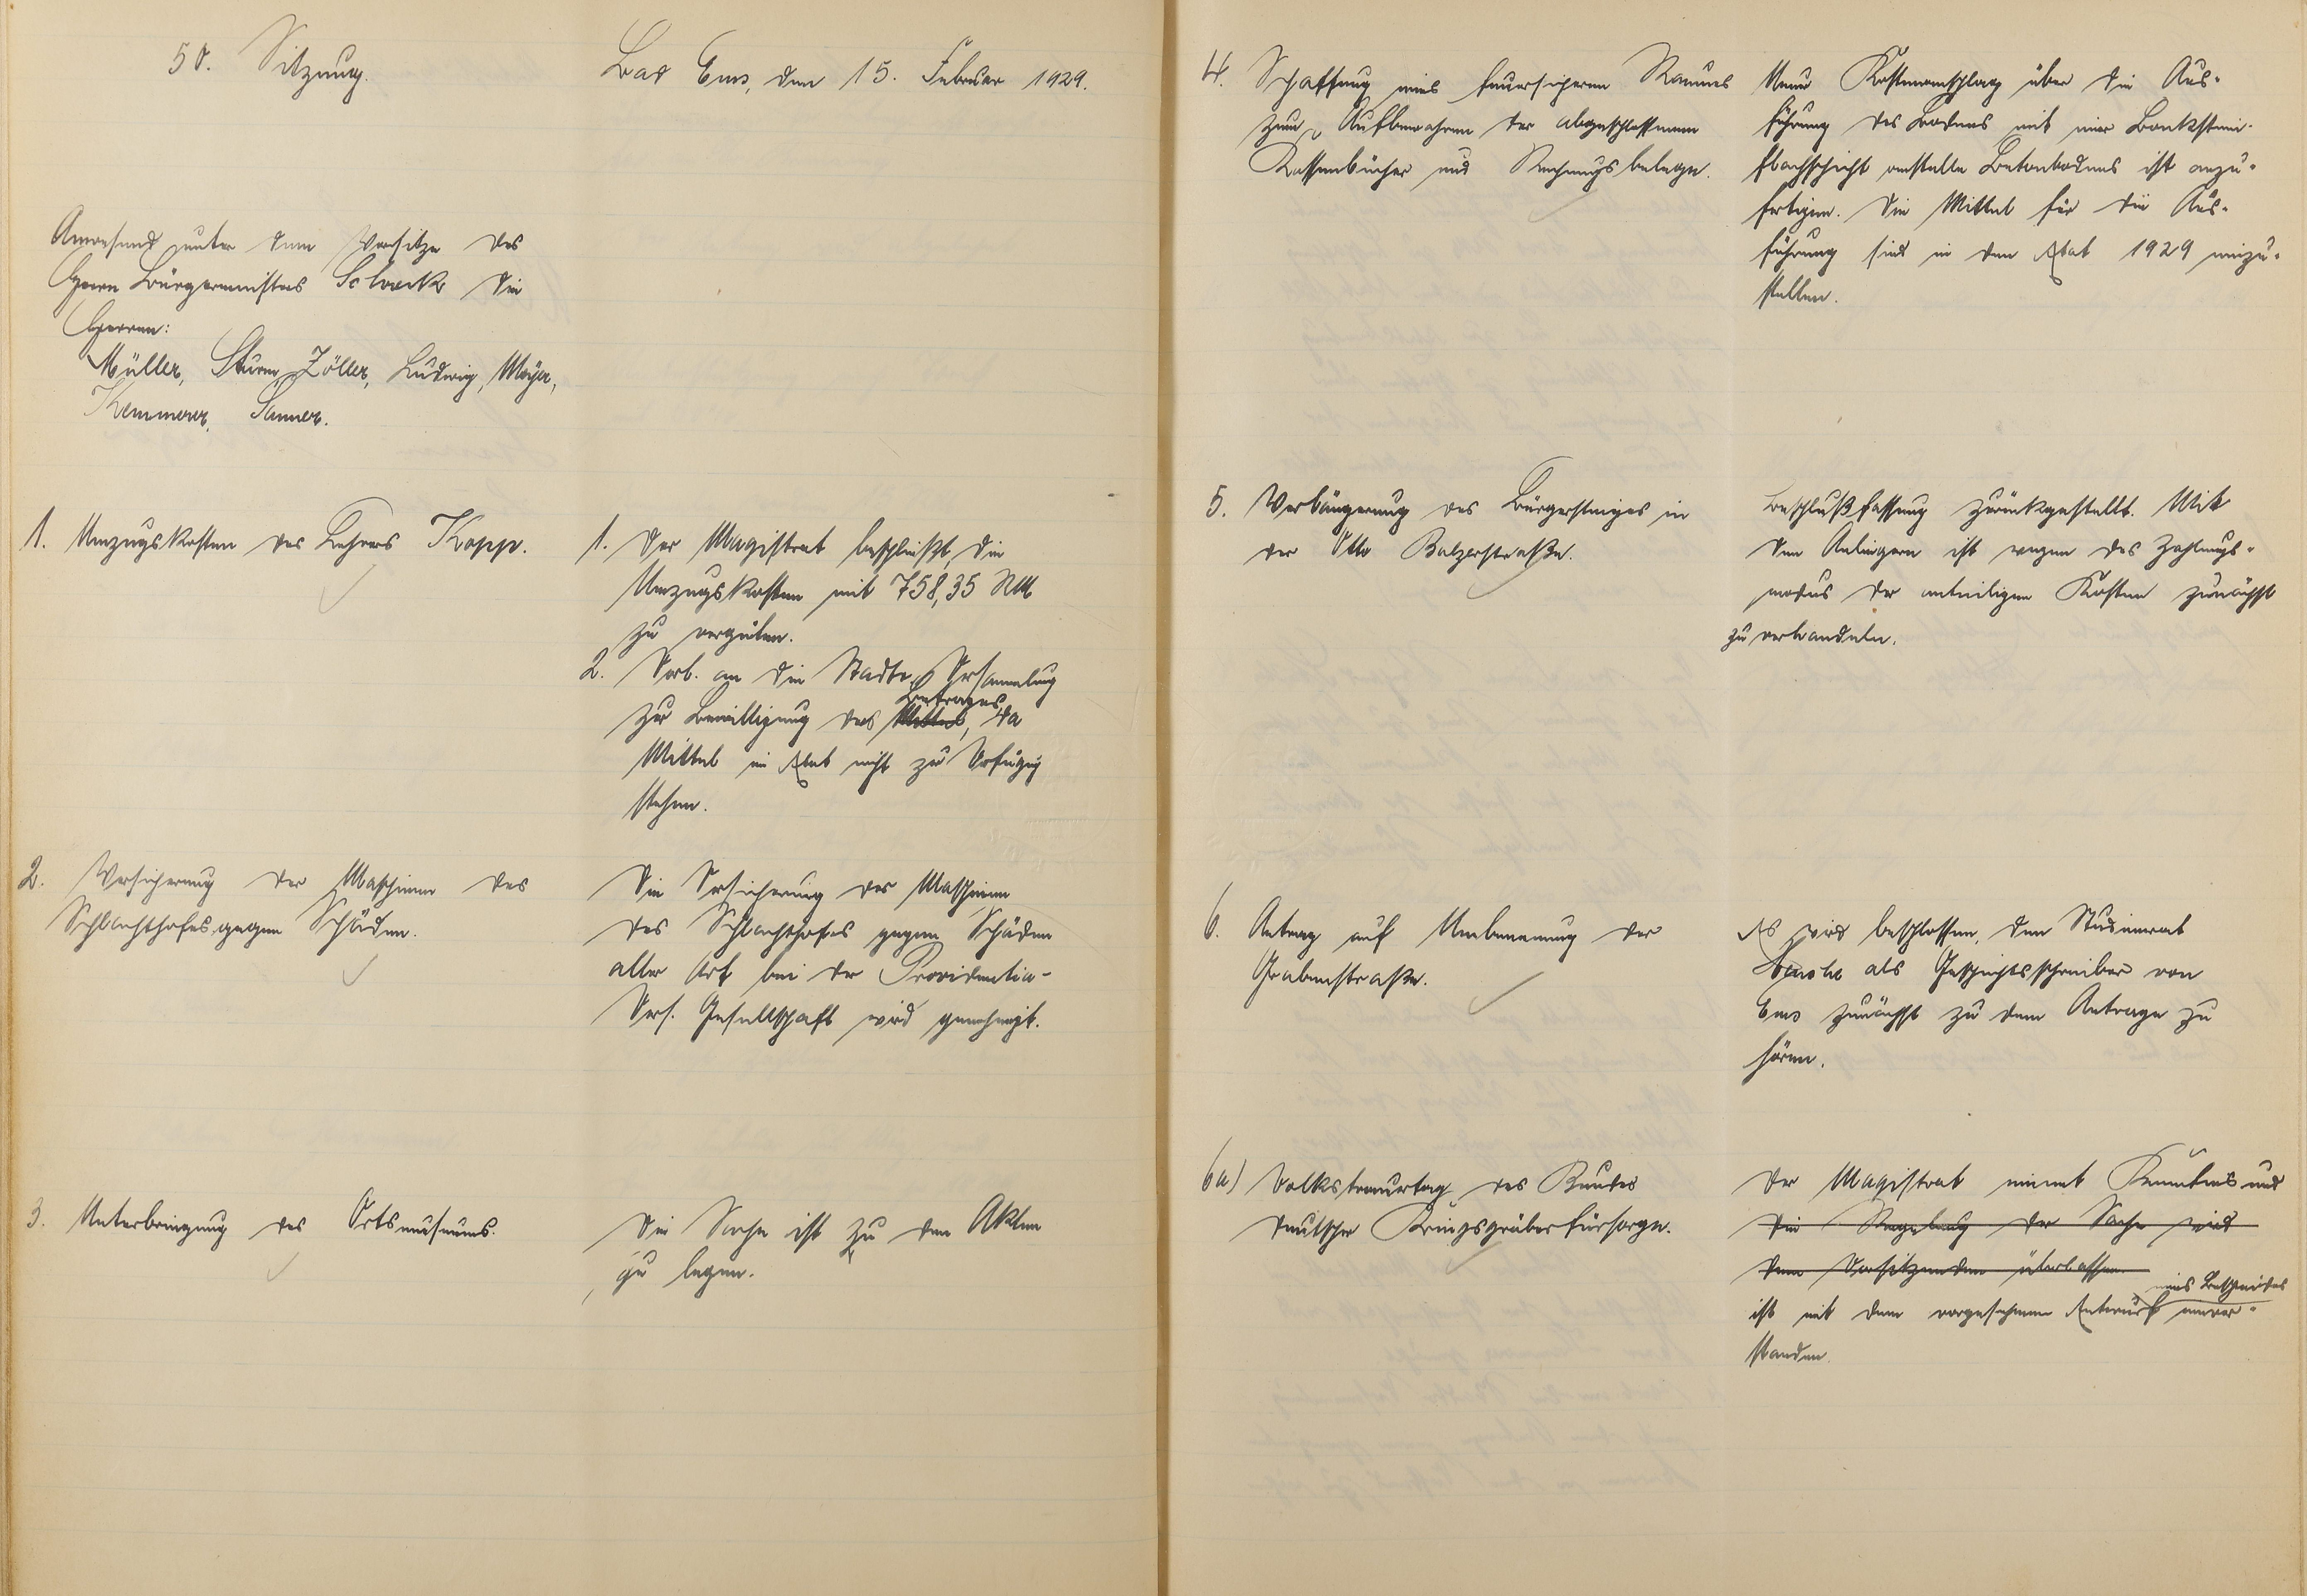 50. Sitzung.
Bad Ems, den 15. Februar 1929.
Anwesend unter dem Vorsitze des
Herrn Bürgermeisters Schreck die
Herren:
Müller, Sturm, Zöller, Ludwig, Mayer,
Kemmerer, Sauer.
1. Umzugskosten des Lehrers Kopp.
1. Der Magistrat beschließt, die
Umzugskosten mit 758,35 RM
zu vergüten.
2. Vorl. an die Stadtv. Versammlung
zur Bewilligung des Mittel Betrages, da
Mittel im Etat nicht zur Verfügung
stehen.
2. Versicherung der Maschinen des
Schlachthofes gegen Schäden.
Die Versicherung der Maschinen
des Schlachthofes gegen Schäden
aller Art bei der Providentia-
Vers. Gesellschaft wird genehmigt.
3. Unterbringung des Ortsmuseums.
Die Sache ist zu den Akten
zu legen.
4. Schaffung eines feuersicheren Raumes
zum Aufbewahren der abgeschlossenen
Kassenbücher und Rechnungsbelege.
Neuer Kostenanschlag über die Aus-
führung des Bodens mit einer Backstein-
flachschicht anstelle Betonbodens ist anzu-
fertigen. Die Mittel für die Aus-
führung sind in den Etat 1929 einzu-
stellen.
5. Verlängerung des Bürgersteiges in
der Otto Balzerstraße.
Beschlußfassung zurückgestellt. Mit
den Anliegern ist wegen des Zahlungs-
modus der anteiligen Kosten zunächst
zu verhandeln.
6. Antrag auf Umbenennung der
Grabenstraße.
Es wird beschlossen, den Studienrat
als Geschichtsschreiber von
Ems zunächst zu dem Antrage zu
hören.
6a) Volkstrauertag des Bundes
deutscher Kriegsgräberfürsorge.
Der Magistrat nimmt Kenntnis und
die Regelung der Sache wird
dem Vorsitzenden überlassen
ist mit dem vorgesehenen Entwurf eines Bescheides einver-
standen.